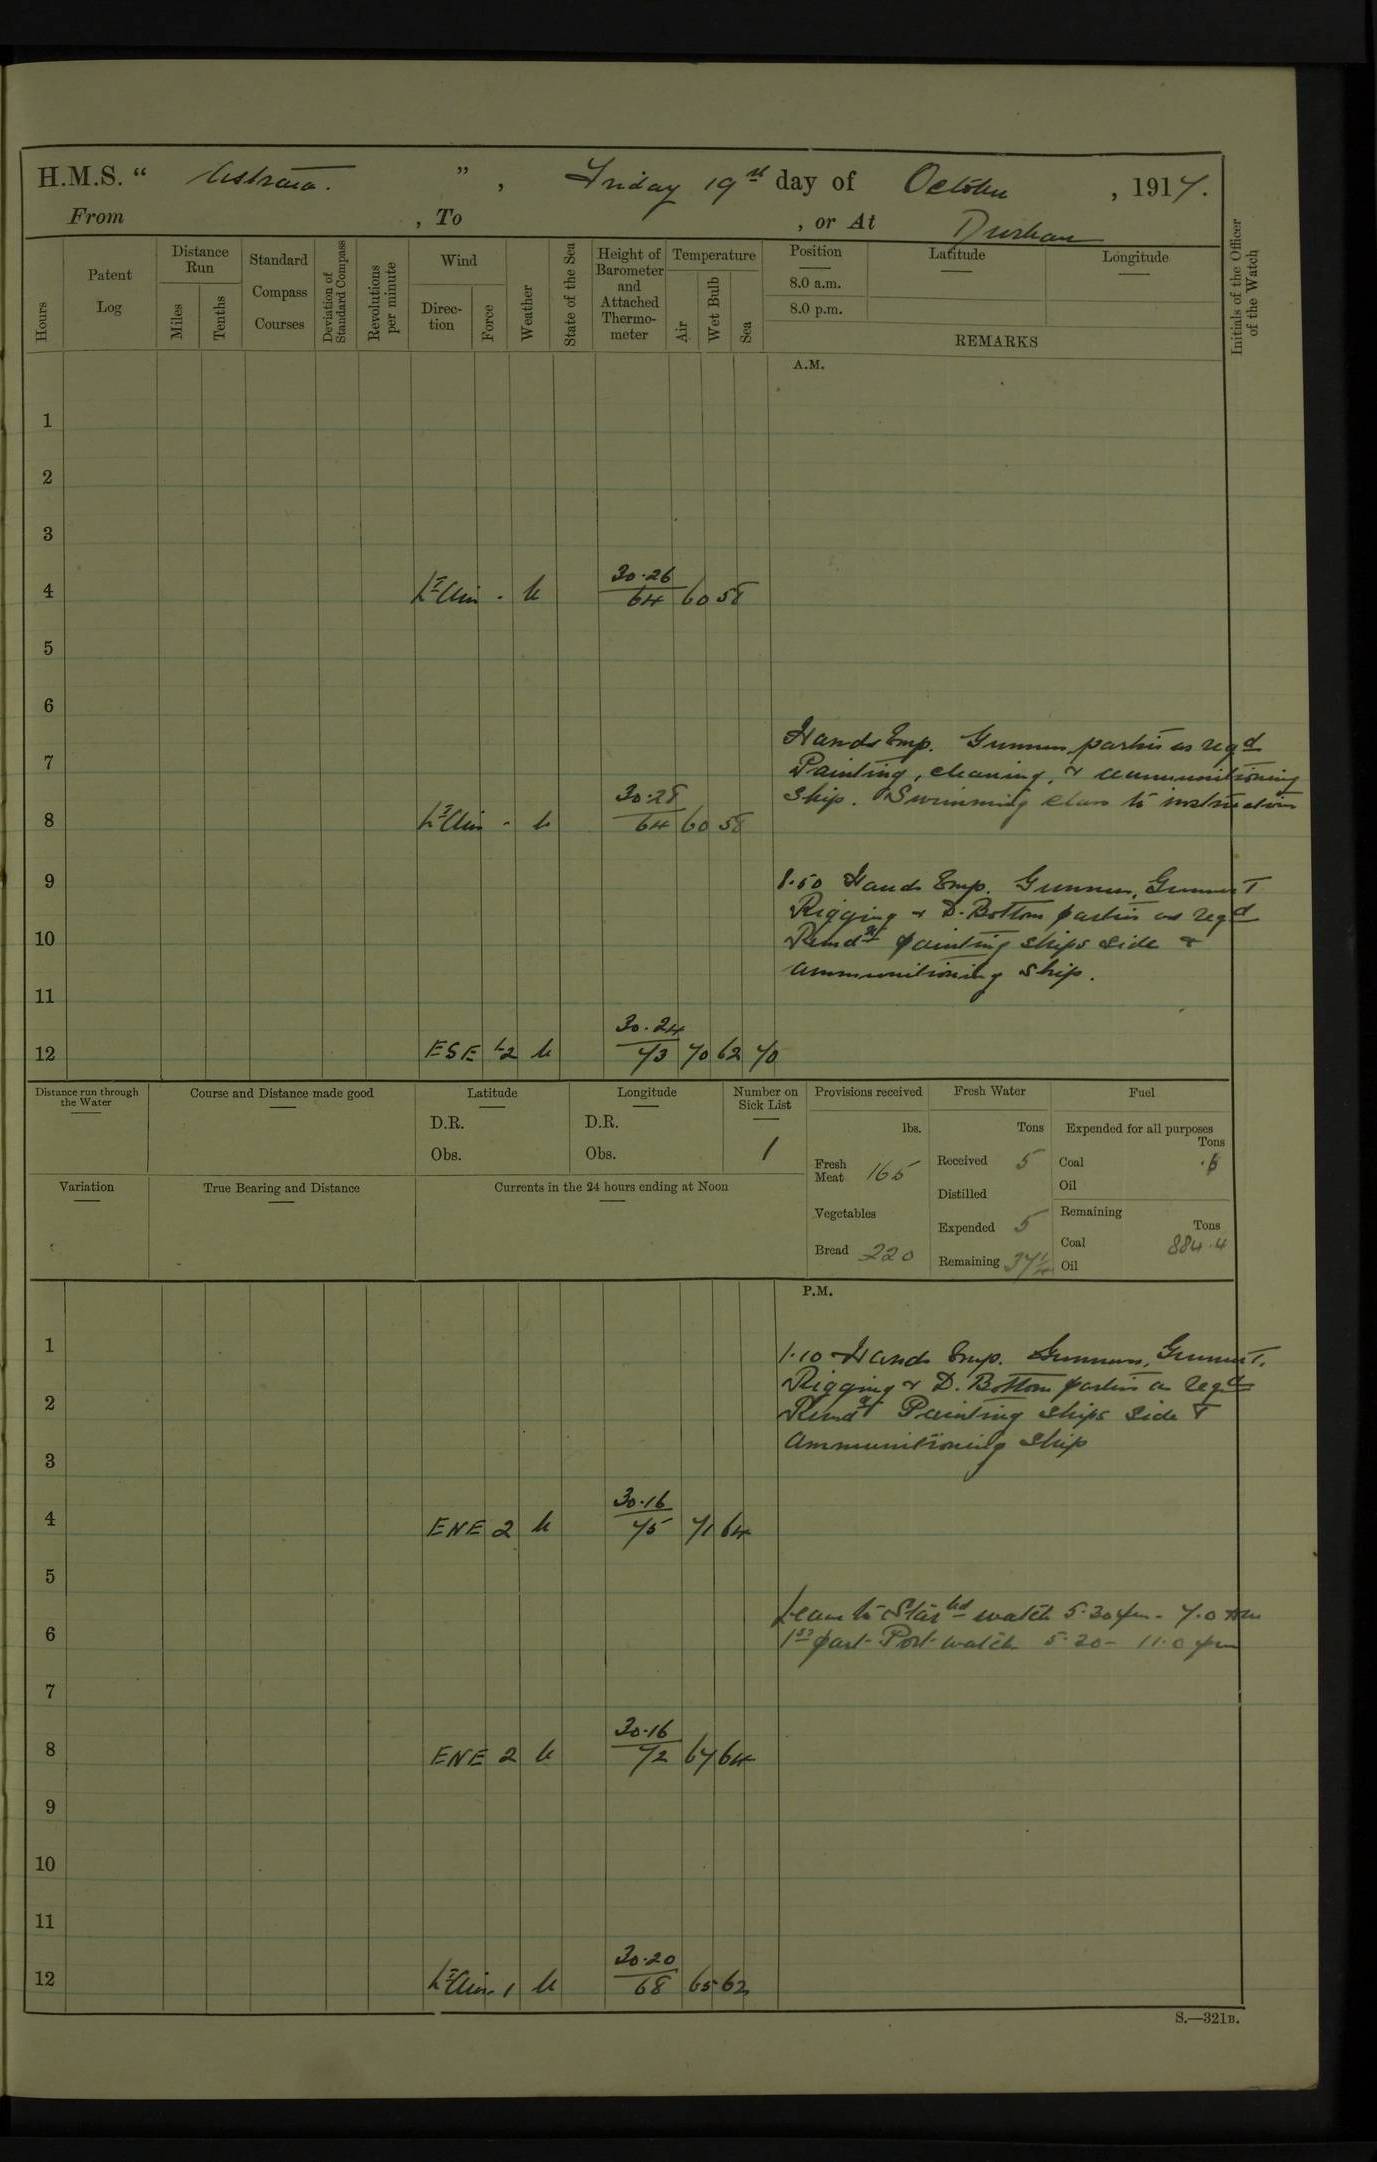 H.M.S. “ Astraea. ” , Friday 19th day of October , 1917.
From , To , or At Durban
Hours
Patent Log
Distance Run
Miles
Tenths
Standard Compass Courses
Deviation of Standard Compass
Revolutions per minute
Wind
Direction
Force
Weather
State of the Sea
Height of Barometer and Attached Thermometer
Temperature
Air
Wet Bulb
Sea
Position
8.0 a.m.
8.0 p.m.
Latitude
Longitude
REMARKS
Initials of the Officer of the Watch
A.M.
1
2
3
30.26
4 Lt Airs - b 64 60 58
5
6
Hands Emp. Gunners parties as reqd
7
Painting, cleaning, & ammunitioning
30.28 Ship. Swimming class to instruction
8 Lt Airs - b 64 60 58
9 8.50 Hands Emp. Gunners, Gunner T
Rigging & D. Bottom parties as reqd
10 Remdr painting ships side &
ammunitioning ship.
11
30.24
12 ESE 1-2 b 73 70 62 70
Distance run through the Water
Course and Distance made good
Latitude
D.R.
Obs.
Longitude
D.R.
Obs.
Number on Sick List
1
Variation
True Bearing and Distance
Currents in the 24 hours ending at Noon
Provisions received
lbs.
Fresh Meat 165
Vegetables
Bread 220
Fresh Water
Tons
Received 5
Distilled
Expended 5
Remaining
Fuel
Expended for all purposes
Tons
Coal
Oil
Remaining
Tons
Coal 884.4
Oil
P.M.
1 1.10 Hands Emp. Gunners, Gunner T.
Rigging & D. Bottom parties as reqd
2 Remdr Painting ships side &
Ammunitioning ship
3
30.16
4 ENE 2 b 75 71 64
5
Leave to Starbd watch 5.30 pm - 7.0 am
6 1st part Port watch 5.20 - 11.0 pm
7
30.16
8 ENE 2 b 72 67 64
9
10
11
30.20
12 Lt Airs 1 b 68 65 62
S.—321B.